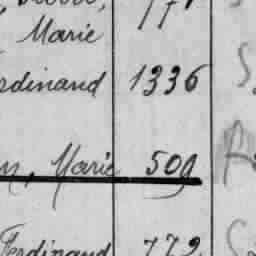 Marie
rdinand 1336 S
n, Marie 509
Ferdinand 772 S